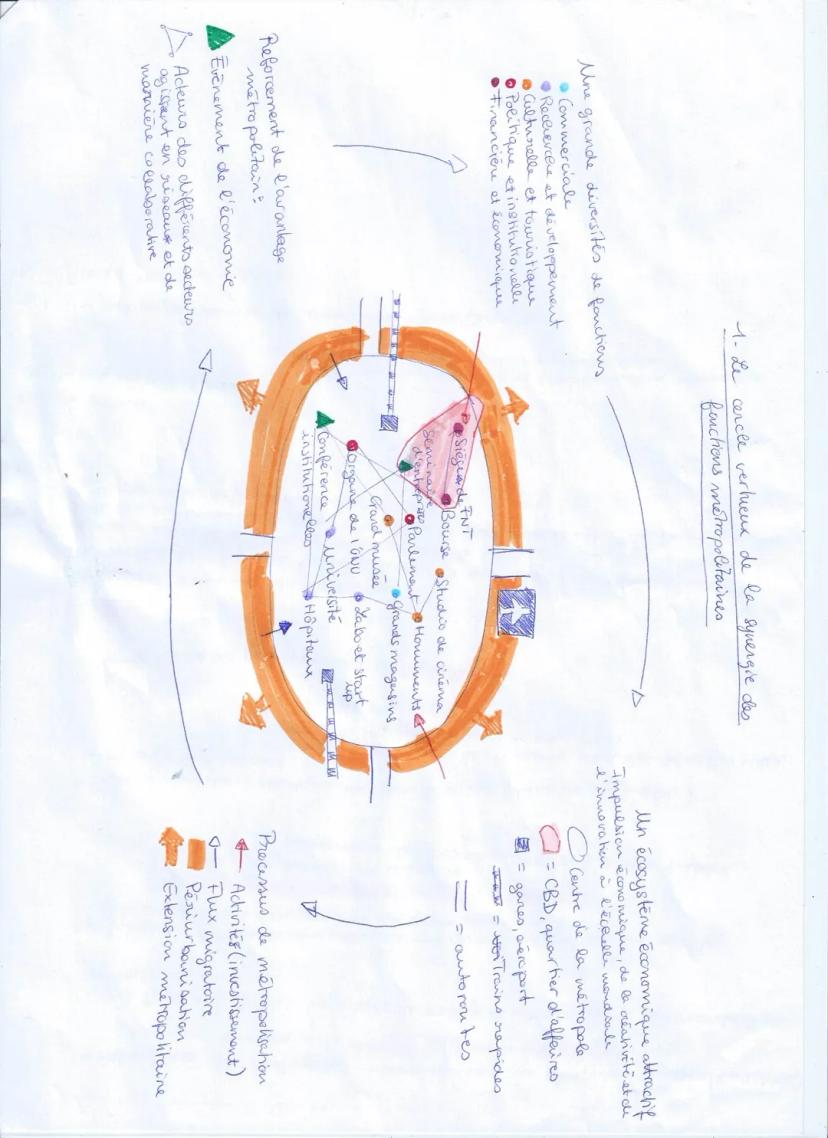 1. Le cercle vertueux de la synergie des
fonctions métropolitaines
Une grande diversités de fonctions
Commerciale
Recherche et développement
Culturelle et touristique
Politique et institutionelle
Financière et économique
Un écosystème économique attractif
Impulsion économique, de la créativité et de
l'innovation à l'échelle mondiale
Centre de la métropole
= CBD, quartier d'affaires
= gares, aéroport
= Trains rapides
= autoroutes
Sièges de FNT
Bourse
Studio de cinéma
Séminaire
d'entreprise
Parlement
Monuments
Grand musée
grands magasins
Organe de l'ONU
Labo et start
up
Université
Conférence
institutionelles
Hôpitaux
Reforcement de l'avantage
métropolitain:
Évènement de l'économie
Acteurs des différents secteurs
agissent en réseaux et de
manière collaborative
Processus de métropolisation
Activités (investissement)
Flux migratoire
Périurbanisation
Extension métropolitaine